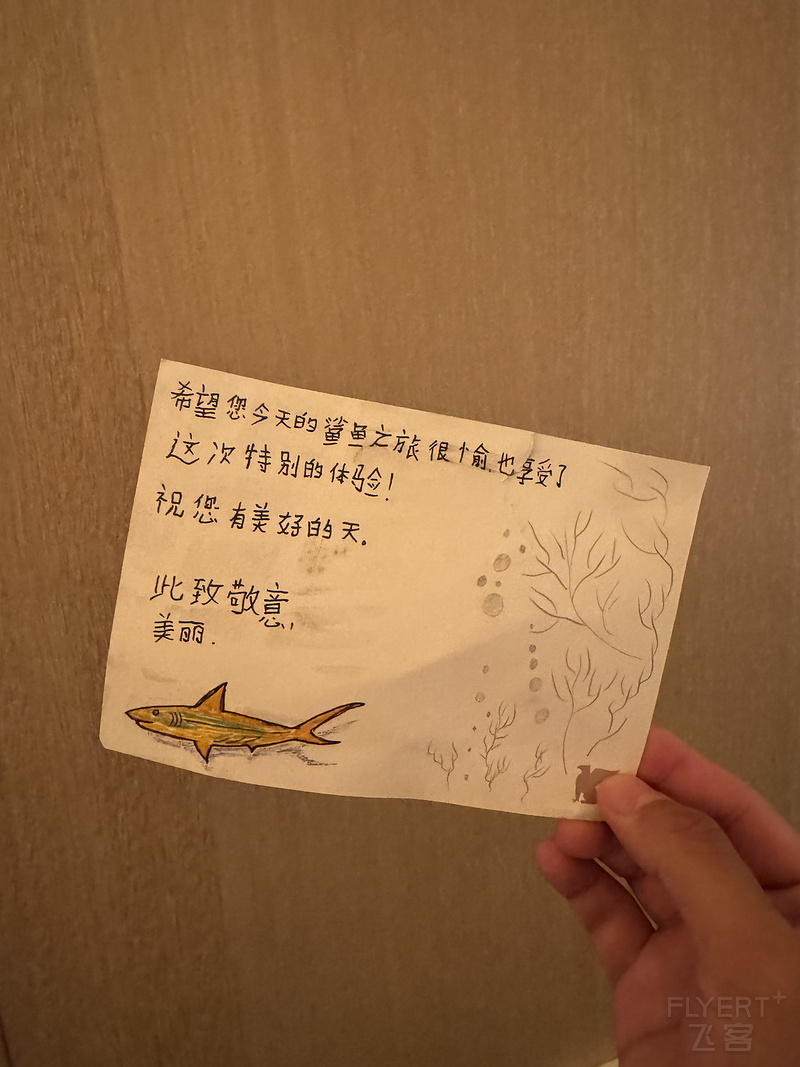 希望您今天的鲨鱼之旅很愉.也享受了
这次特别的体验!
祝您有美好的天.
此致敬意,
美丽.
FLYERT+
飞客